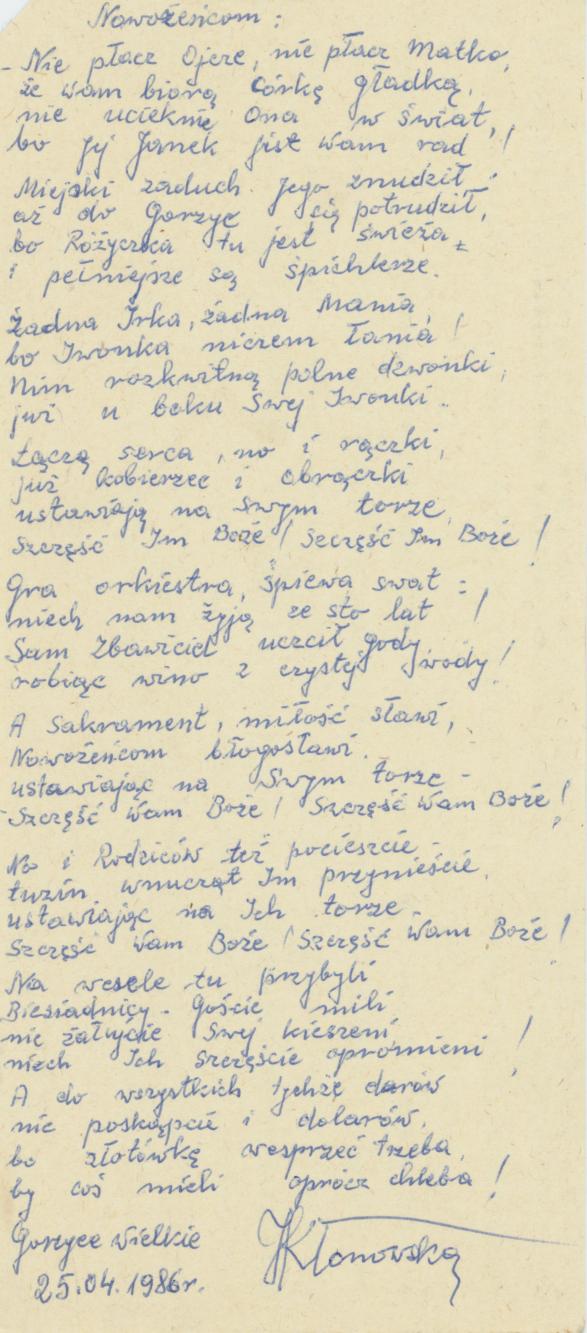 Nowożeńcom :
- Nie płacz Ojcze, nie płacz Matko,
że wam biorą Córkę gładką,
nie ucieknie Ona w świat,
bo Jej Janek jest Wam rad !
Miejski zaduch Jego znudził
aż do Gorzyc się potrudził,
bo Różyczka tu jest świeża
i pełniejsze są śpichlerze.
Żadna Irka, żadna Mania,
bo Iwonka niczem łania !
Nim rozkwitną polne dzwonki,
już u boku Swej Iwonki.
Łączą serca, no i rączki,
już kobierzec i obrączki
ustawiają na Swym torze
Szczęść Im Boże ! Szczęść Im Boże !
Gra orkiestra, śpiewa swat :
niech nam żyją ze sto lat !
Sam Zbawiciel uczcił gody
robiąc wino z czystej wody !
A Sakrament, miłość sławi,
Nowożeńcom błogosławi
ustawiając na Swym torze -
- Szczęść Wam Boże ! Szczęść Wam Boże !
No i Rodziców też pocieszcie -
tuzin wnucząt Im przynieście,
ustawiając na Ich torze
Szczęść Wam Boże ! Szczęść Wam Boże !
Na wesele tu przybyli
Biesiadnicy - Goście mili
nie żałujcie Swej kieszeni,
niech Ich Szczęście opromieni !
A do wszystkich tychże darów
nie poskąpcie i dolarów,
bo złotówkę wesprzeć trzeba,
by coś mieli oprócz chleba !
Gorzyce Wielkie JKłonowska
25.04.1986r.